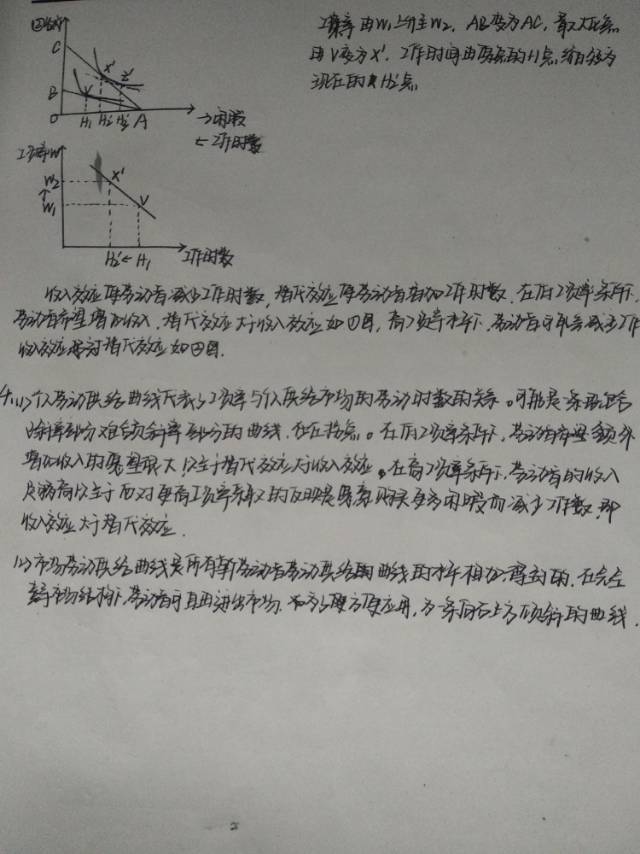 工资率由W₁上升至W₂, AB变为AC, 最大化点
由V变为X'. 工作时间由原来的H点缩短为
现在的H₂'点.
C
X'
Z'
B
V
O H₁ H₂' H₂ A
→闲暇
←工作时数
工资率W
W₂
X'
W₁
V
H₂'←H₁ 工作时数
收入效应使劳动者减少工作时数, 替代效应使劳动者增加工作时数. 在低工资率条件下,
劳动者希望增加收入, 替代效应大于收入效应如①图, 高工资率水平下, 劳动者可能会减少工作
收入效应 替代效应如②图.
4.(1)个人劳动供给曲线代表了工资率与个人供给市场的劳动时数的关系. 可能是一条既包含
正斜率部分又包含负斜率部分的曲线, 存在拐点. 在低工资率条件下, 劳动者希望额外
增加收入的愿望很大以至于替代效应大于收入效应. 在高工资率条件下, 劳动者的收入
足够高以至于面对更高工资率 的反映是 购买更多闲暇而减少工作数, 即
收入效应大于替代效应.
(2)市场劳动供给曲线是所有 劳动者劳动供给曲线的水平相加得到的. 在完全
竞争市场结构下, 劳动者可自由进出市场. 为了 方便应用, 为一条向右上方倾斜的曲线.
2